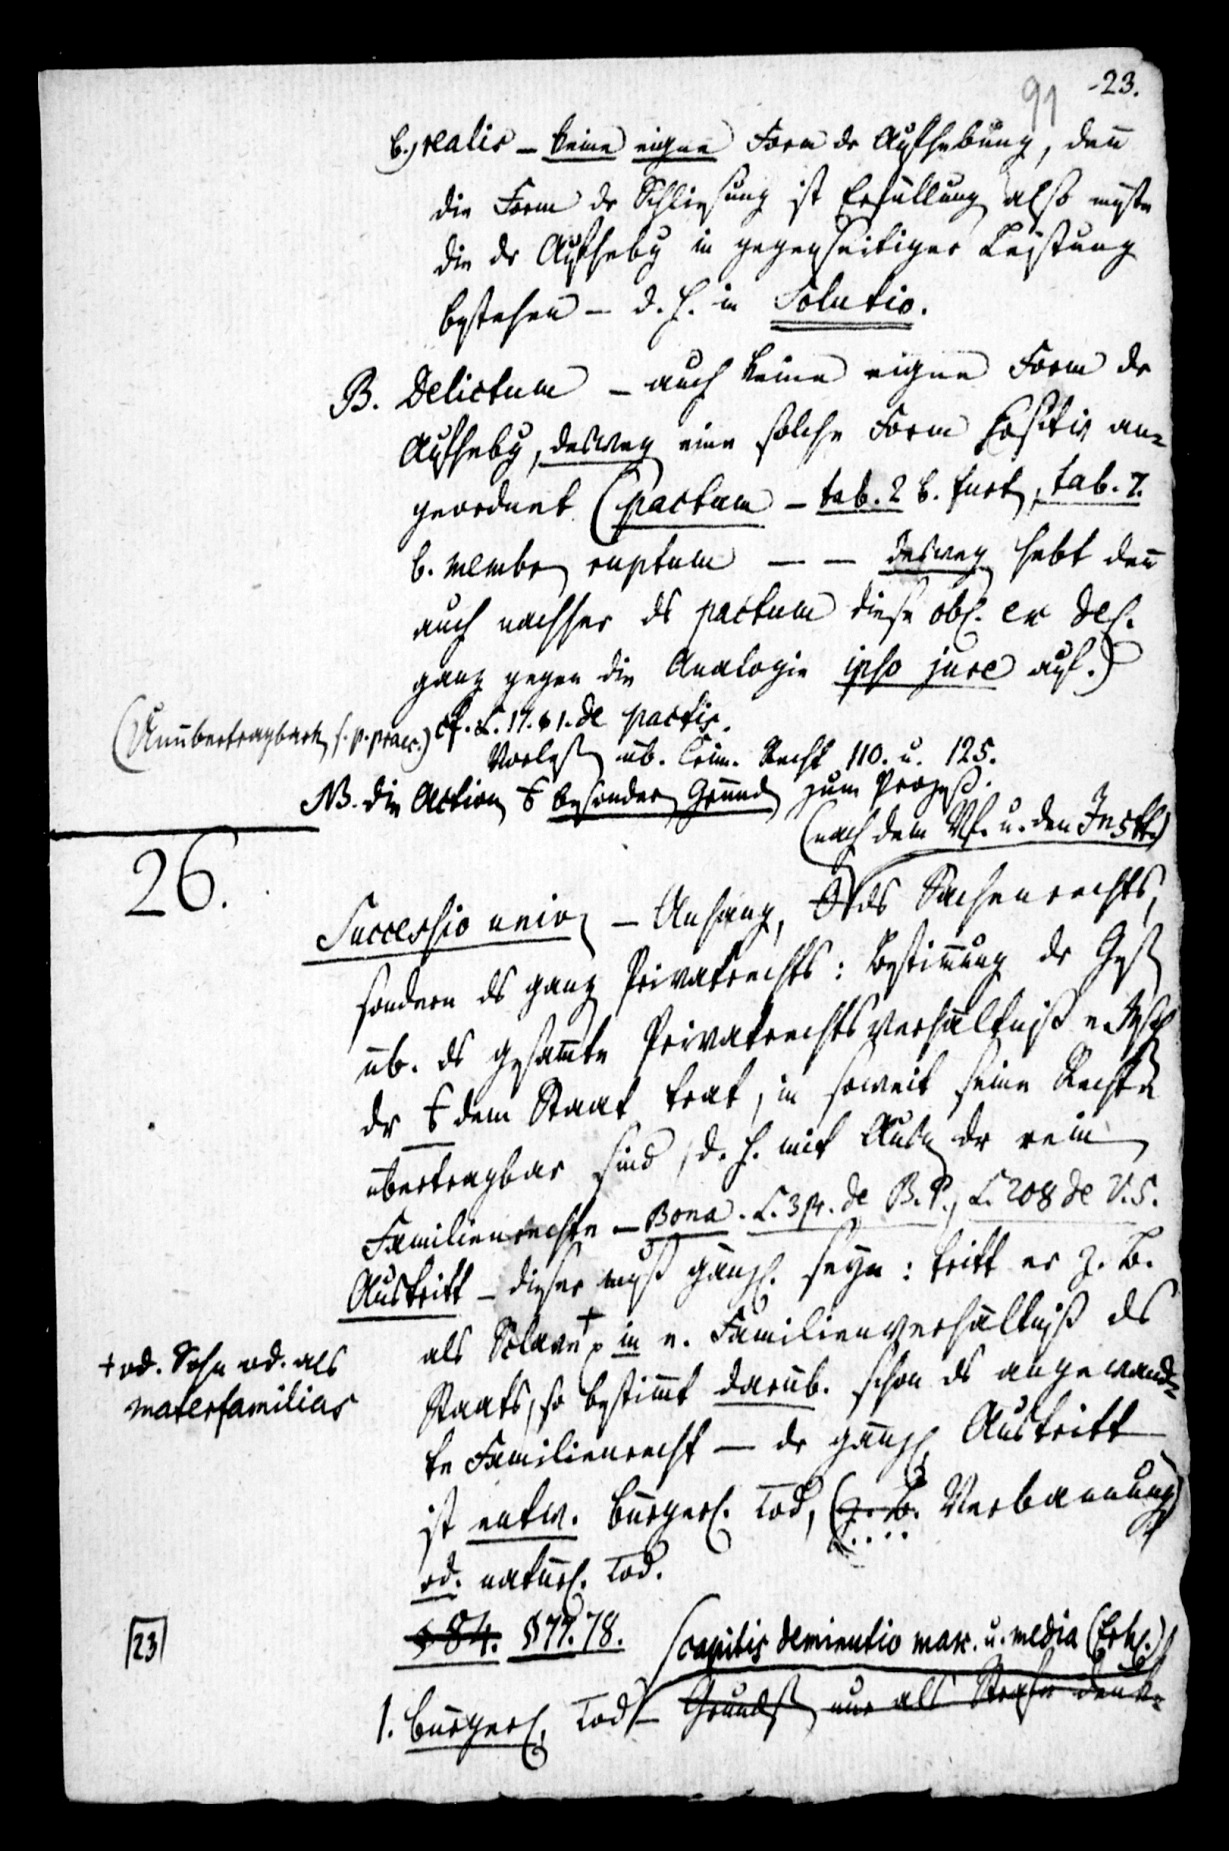 91 -23.
b.) realis – keine eigne Form dr Aufhebung, denn
die Form dr Schliesung ist Erfüllung also müste
die dr Aufhebg in gegenseitiger Leistung
bestehen – d. h. in Solutio.
B. Delictum – auch keine eigne Form dr
Aufhebg, deswegen eine solche Form positiv an=
geordnet (pactum – tab. 2 b. furt, tab. 7.
b. membr ruptum – – deswegen hebt denn
auch nachher ds pactum diese obl. ex del.
ganz gegen die Analogie ipso jure auf.)
(Unübertragbark, s. p. praec.) cf. L. 17. §1. de pactis.
Vorles. üb. Crim. Recht 110. u. 125.
NB. die Action besonder Grund zum Prozeß.
(nach dem Vf. u. den Instt.)
26.
Successio univ – Anhang, ds Sachenrechts,
sondern ds ganz Privatrechts: Bestimmung dr Ges
üb. ds gesammte Privatrechtsverhältniß e.
dr dem Staat trat, in soweit seine Rechte
übertragbar sind, d. h. mit Ausn dr rein
Familienrechte – Bona. L. 3 pr. de B. P., L. 208 de V. S.
Austritt – dieser muß gänzl. seyn: tritt er z. B.
als Sclave + in e. Familienverhältniß ds
+ od. Sohn od. als
materfamilias
Staats, so bestimmt darüb. schon ds angewand=
te Familienrecht – dr gänzl. Austritt
ist entw. bürgerl. Tod, (z. B. Verbannung)
od. natürl. Tod.
23
§ 84. § 77. 78.
(capitis deminutio max. u. media (Erkl.)
1. bürgerl. Tod – Grunds nur als Strafe denk=